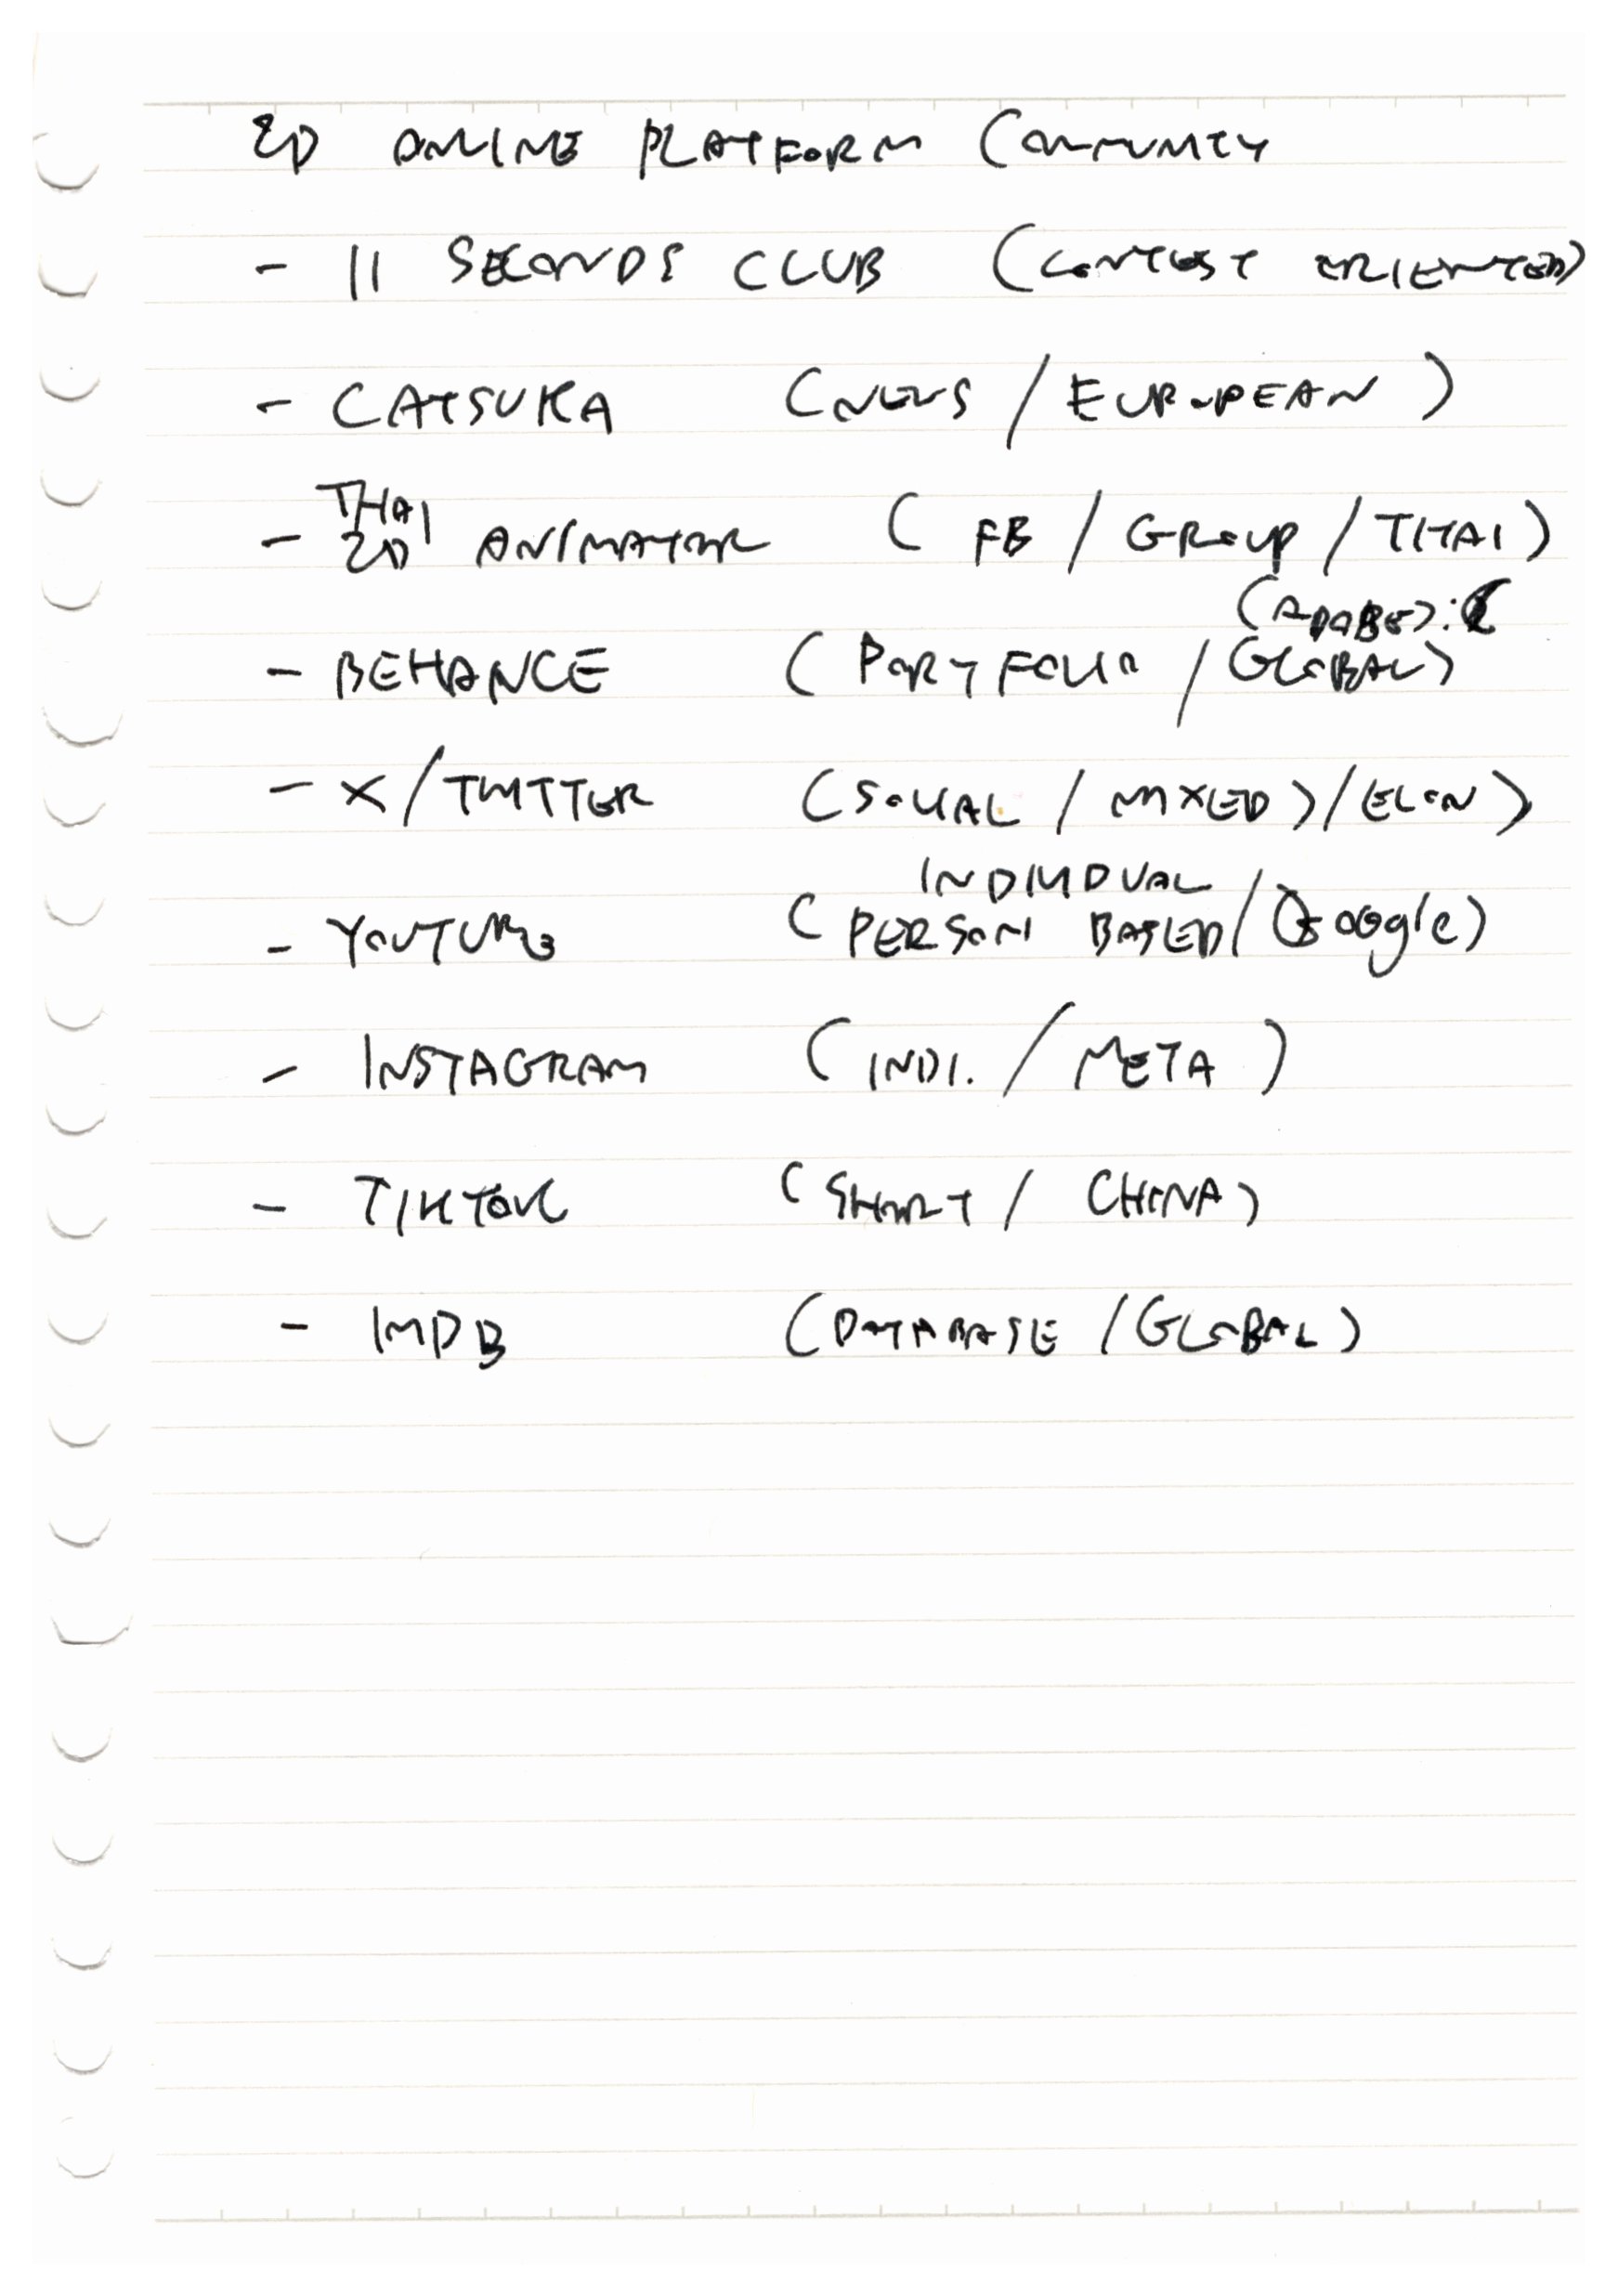 2D ONLINE PLATFORM COMMUNITY
- 11 SECONDS CLUB (CONTEST ORIENTED)
- CATSUKA (NEWS / EUROPEAN)
THAI
- 2D ANIMATOR (FB / GROUP / THAI)
(ADOBE) :(
- BEHANCE (PORTFOLIO / GLOBAL)
- X/TWITTER (SOCIAL / MIXED) / ELON)
INDIVIDUAL
- YOUTUBE (PERSON BASED / Google)
- INSTAGRAM (INDI. / META)
- TIKTOK (SHORT / CHINA)
- IMDB (DATABASE / GLOBAL)